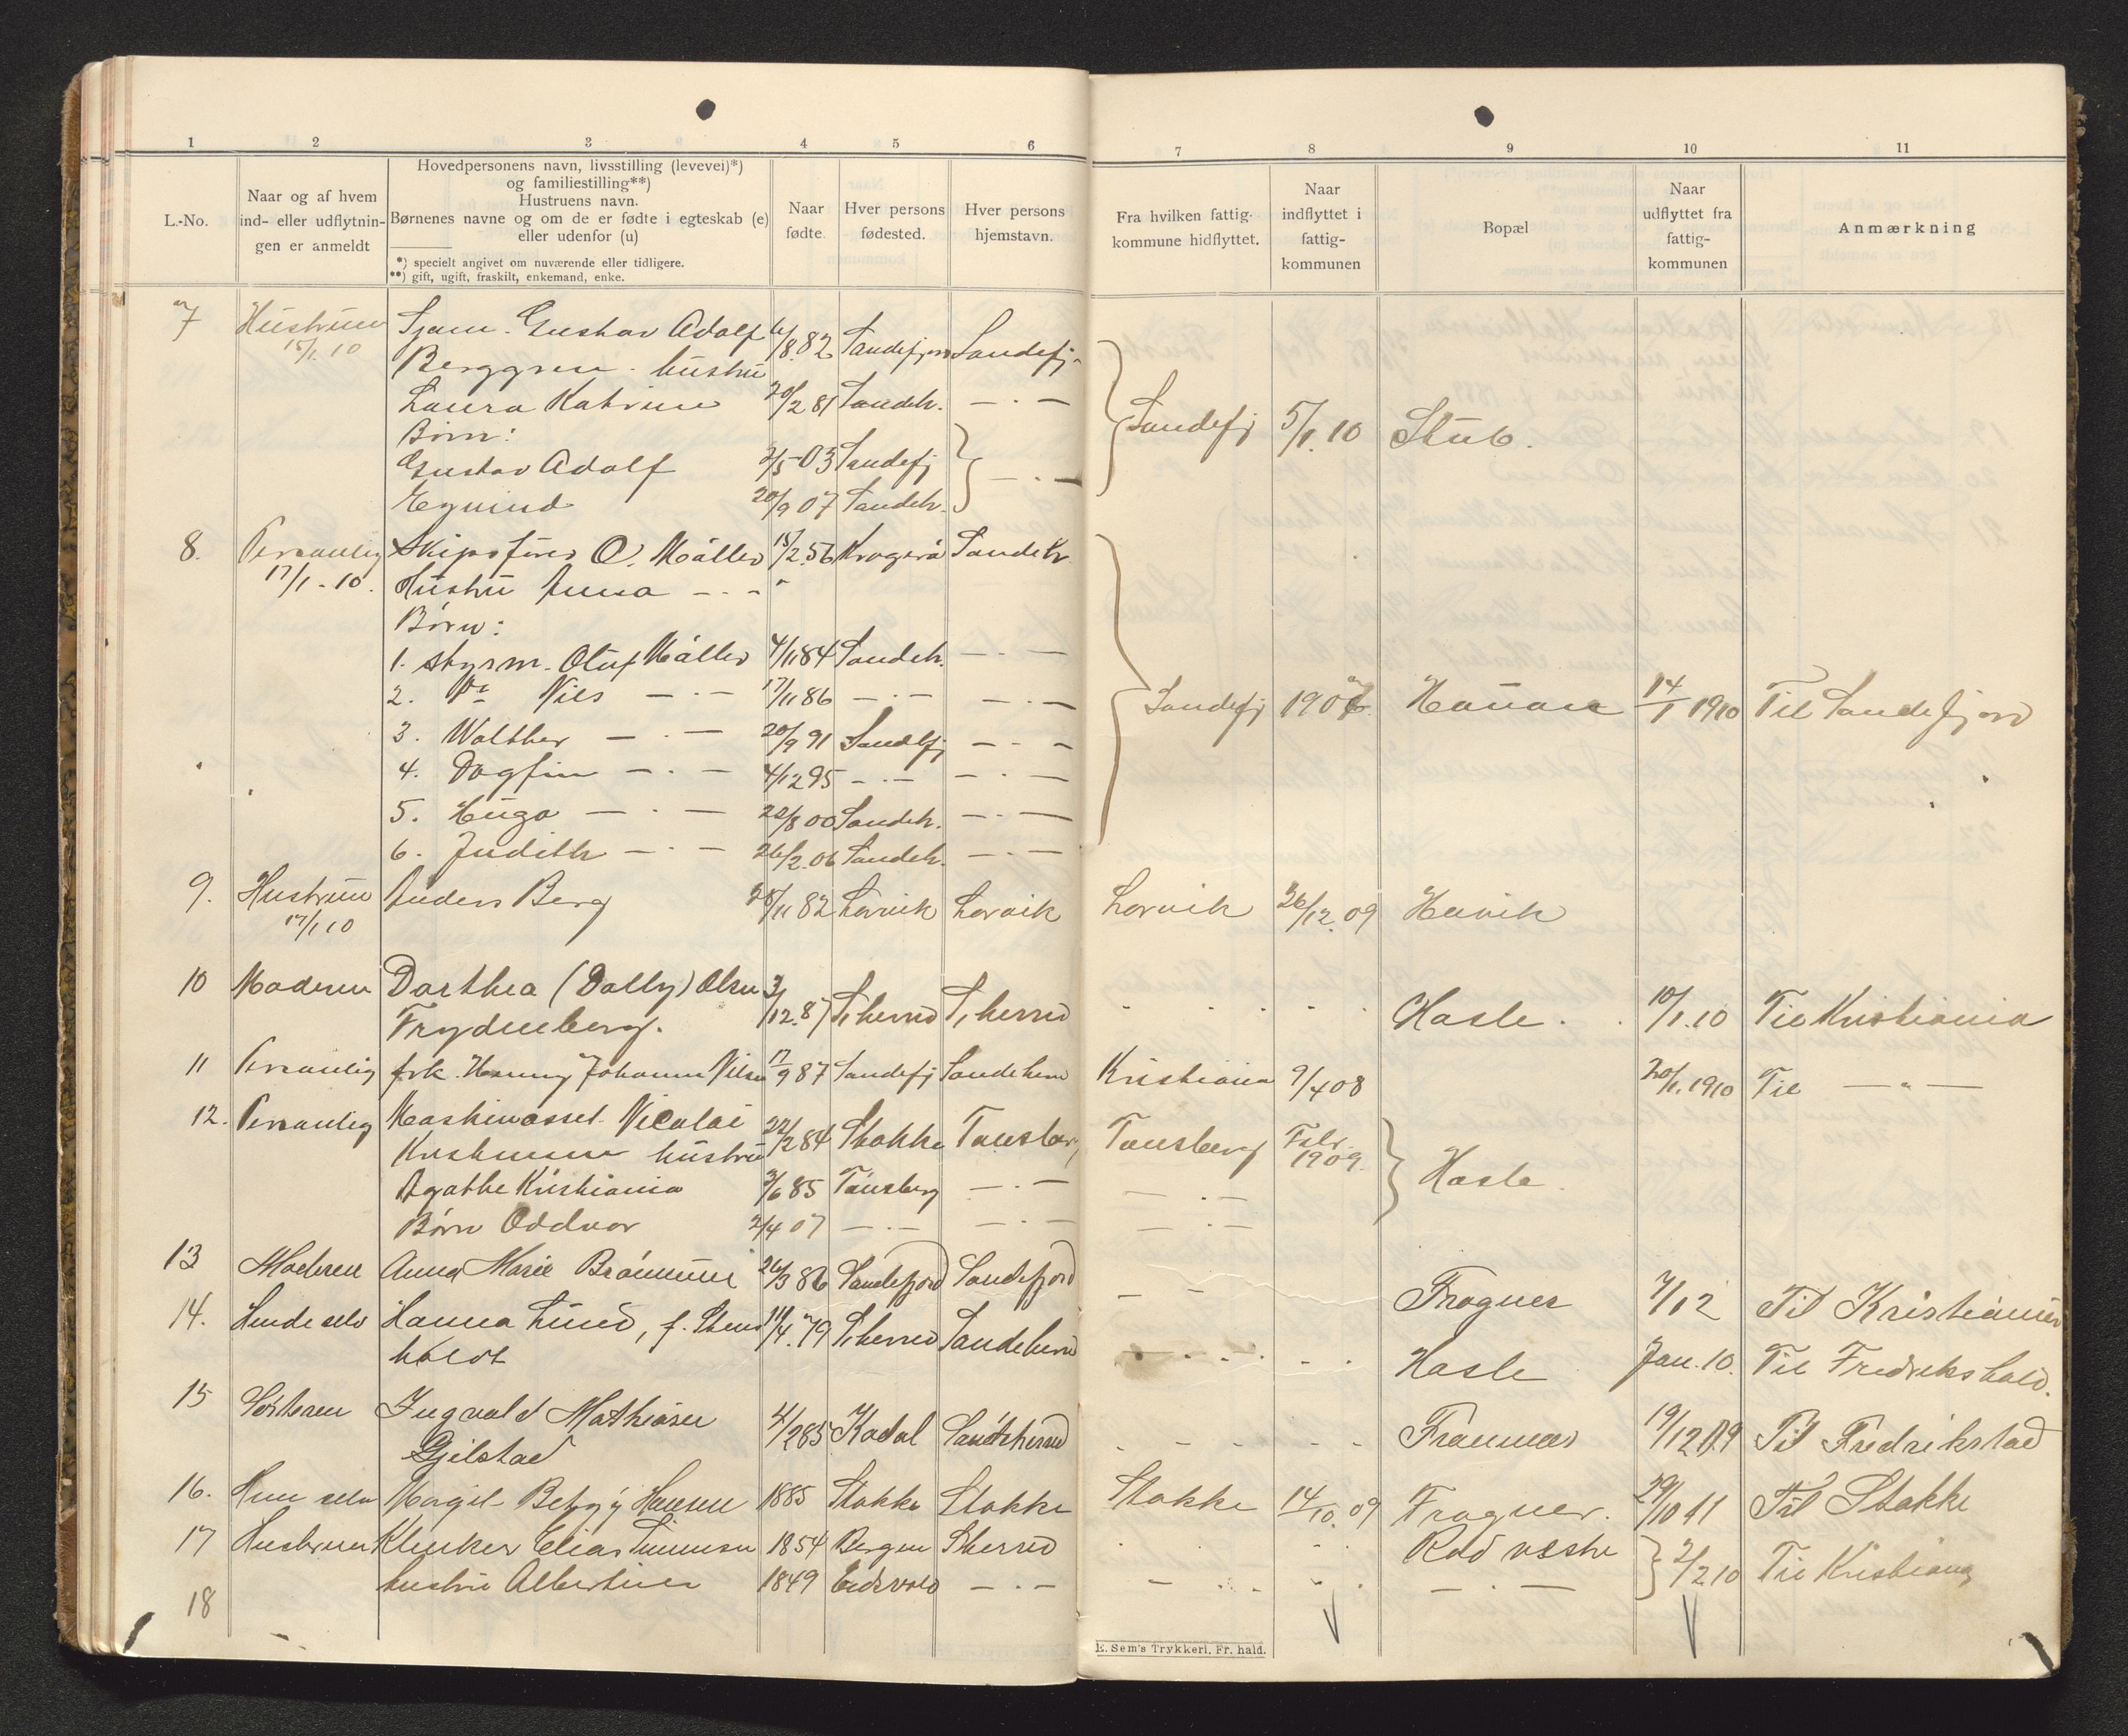 1 2 3 4 5 6 7 8 9 10 11
L.-No.
Naar og af hvem
ind- eller udflytnin-
gen er anmeldt
Hovedpersonens navn, livsstilling (levevei)*)
og familiestilling**)
Hustruens navn.
Børnenes navne og om de er fødte i egteskab (e)
eller udenfor (u)
*) specielt angivet om nuværende eller tidligere.
**) gift, ugift, fraskilt, enkemand, enke.
Naar
fødte.
Hver persons
fødested.
Hver persons
hjemstavn.
Fra hvilken fattig-
kommune hidflyttet.
Naar
indflyttet i
fattig-
kommunen
Bopæl
Naar
udflyttet fra
fattig-
kommunen
Anmærkning
7 Hustruen Sjøm. Gustav Adolf 6/8.82 Sandefjord Sandefj.
15/1.10 Berggren. hustru
Laura Katrine 20/2 81 Sandeh. — . —
Børn: Sandefj 5/1.10 Stub.
Gustav Adolf 2/5 03 Sandefj
Eyvind 20/9 07 Sandeh. — . —
8. Personlig Skipsfører O. Møller 15/2.56 Kragerø Sandehr
17/1-10. Hustru Anna — . —
Børn:
1. styrm. Oluf Møller 4/1 84 Sandeh. — . —
2. Do Nils — . — 17/11 86 — . — — . — Sandefj 1907 Hauan 14/1 1910 Til Sandefjord
3. Walther — . — 20/9 91 Sandefj — . —
4. Dagfin — . — 4/12 95 — . — — . —
5. Hugo — . — 22/8 00 Sandeh. — . —
6. Judith — . — 26/2.06 Sandeh. — . —
9. Hustruen Anders Berg 28/11 82 Larvik Larvik Larvik 26/12.09 Havik
17/1 10
10 Moderen Dorthea (Dolly) Olsen 3/12.87 Sherred Sherred Hasle. 10/1.10 Til Kristiania
Frydenberg.
11 Personlig frk. Henny Johanne Nilsen 17/9 87 Sandefj Sandeherred Kristiania 9/4 08 20/1.1910 Til — " —
12. Personlig Maskinassist. Nicolai 22/2 84 Stokke Tønsberg Tønsberg Febr. 1909.
Kristensen hustru
Agathe Kristiania 3/6 85 Tønsberg — . — — . — Hasle.
Børn Oddvar 2/4 07 — . — — . — — . —
13 Moderen Anna Marie 26/3 86 Sandefjord Sandefjord Fragner 7/12 Til Kristiania
14. Hende selv Hanna Lund, f. Stens 14/4.79 Sherred Sandeherred Hasle Jan. 10. Til Fredrikshald.
holdt
15 Søsteren Ingvald Mathiasen 4/2 85 Kodal Sandeherred Framnæs 19/12 09 Til Fredrikstad
Gjelstad
16. Hun selv Margit Betzy Hansen 1885 Stokke Stokke Stokke 14/10.09 Fragner. 29/10 11 Til Stokke
17 Hustruen Klinker Elias Simensen 1854 Bergen Sherred Rød vestre 2/2 10 Til Kristiania
hustru Albertine 1849 Eidsvold — . — — . —
18
E. Sem's Trykkeri, Fr. hald.